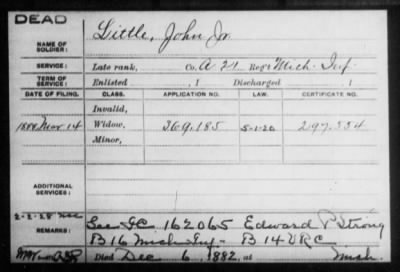 DEAD
NAME OF SOLDIER: Little, John Jr.
SERVICE: Late rank, Co. A 21 Reg't Mich. Inf.
TERM OF SERVICE: Enlisted , 1 Discharged , 1
DATE OF FILING. CLASS. APPLICATION NO. LAW. CERTIFICATE NO.
Invalid,
Widow, 369,185 297,554
Minor,
ADDITIONAL SERVICES:
REMARKS: See 162065 Edward P Strong
B 16 Mich Inf - B 14 VRC
Died Dec 6, 1882, at Mich.